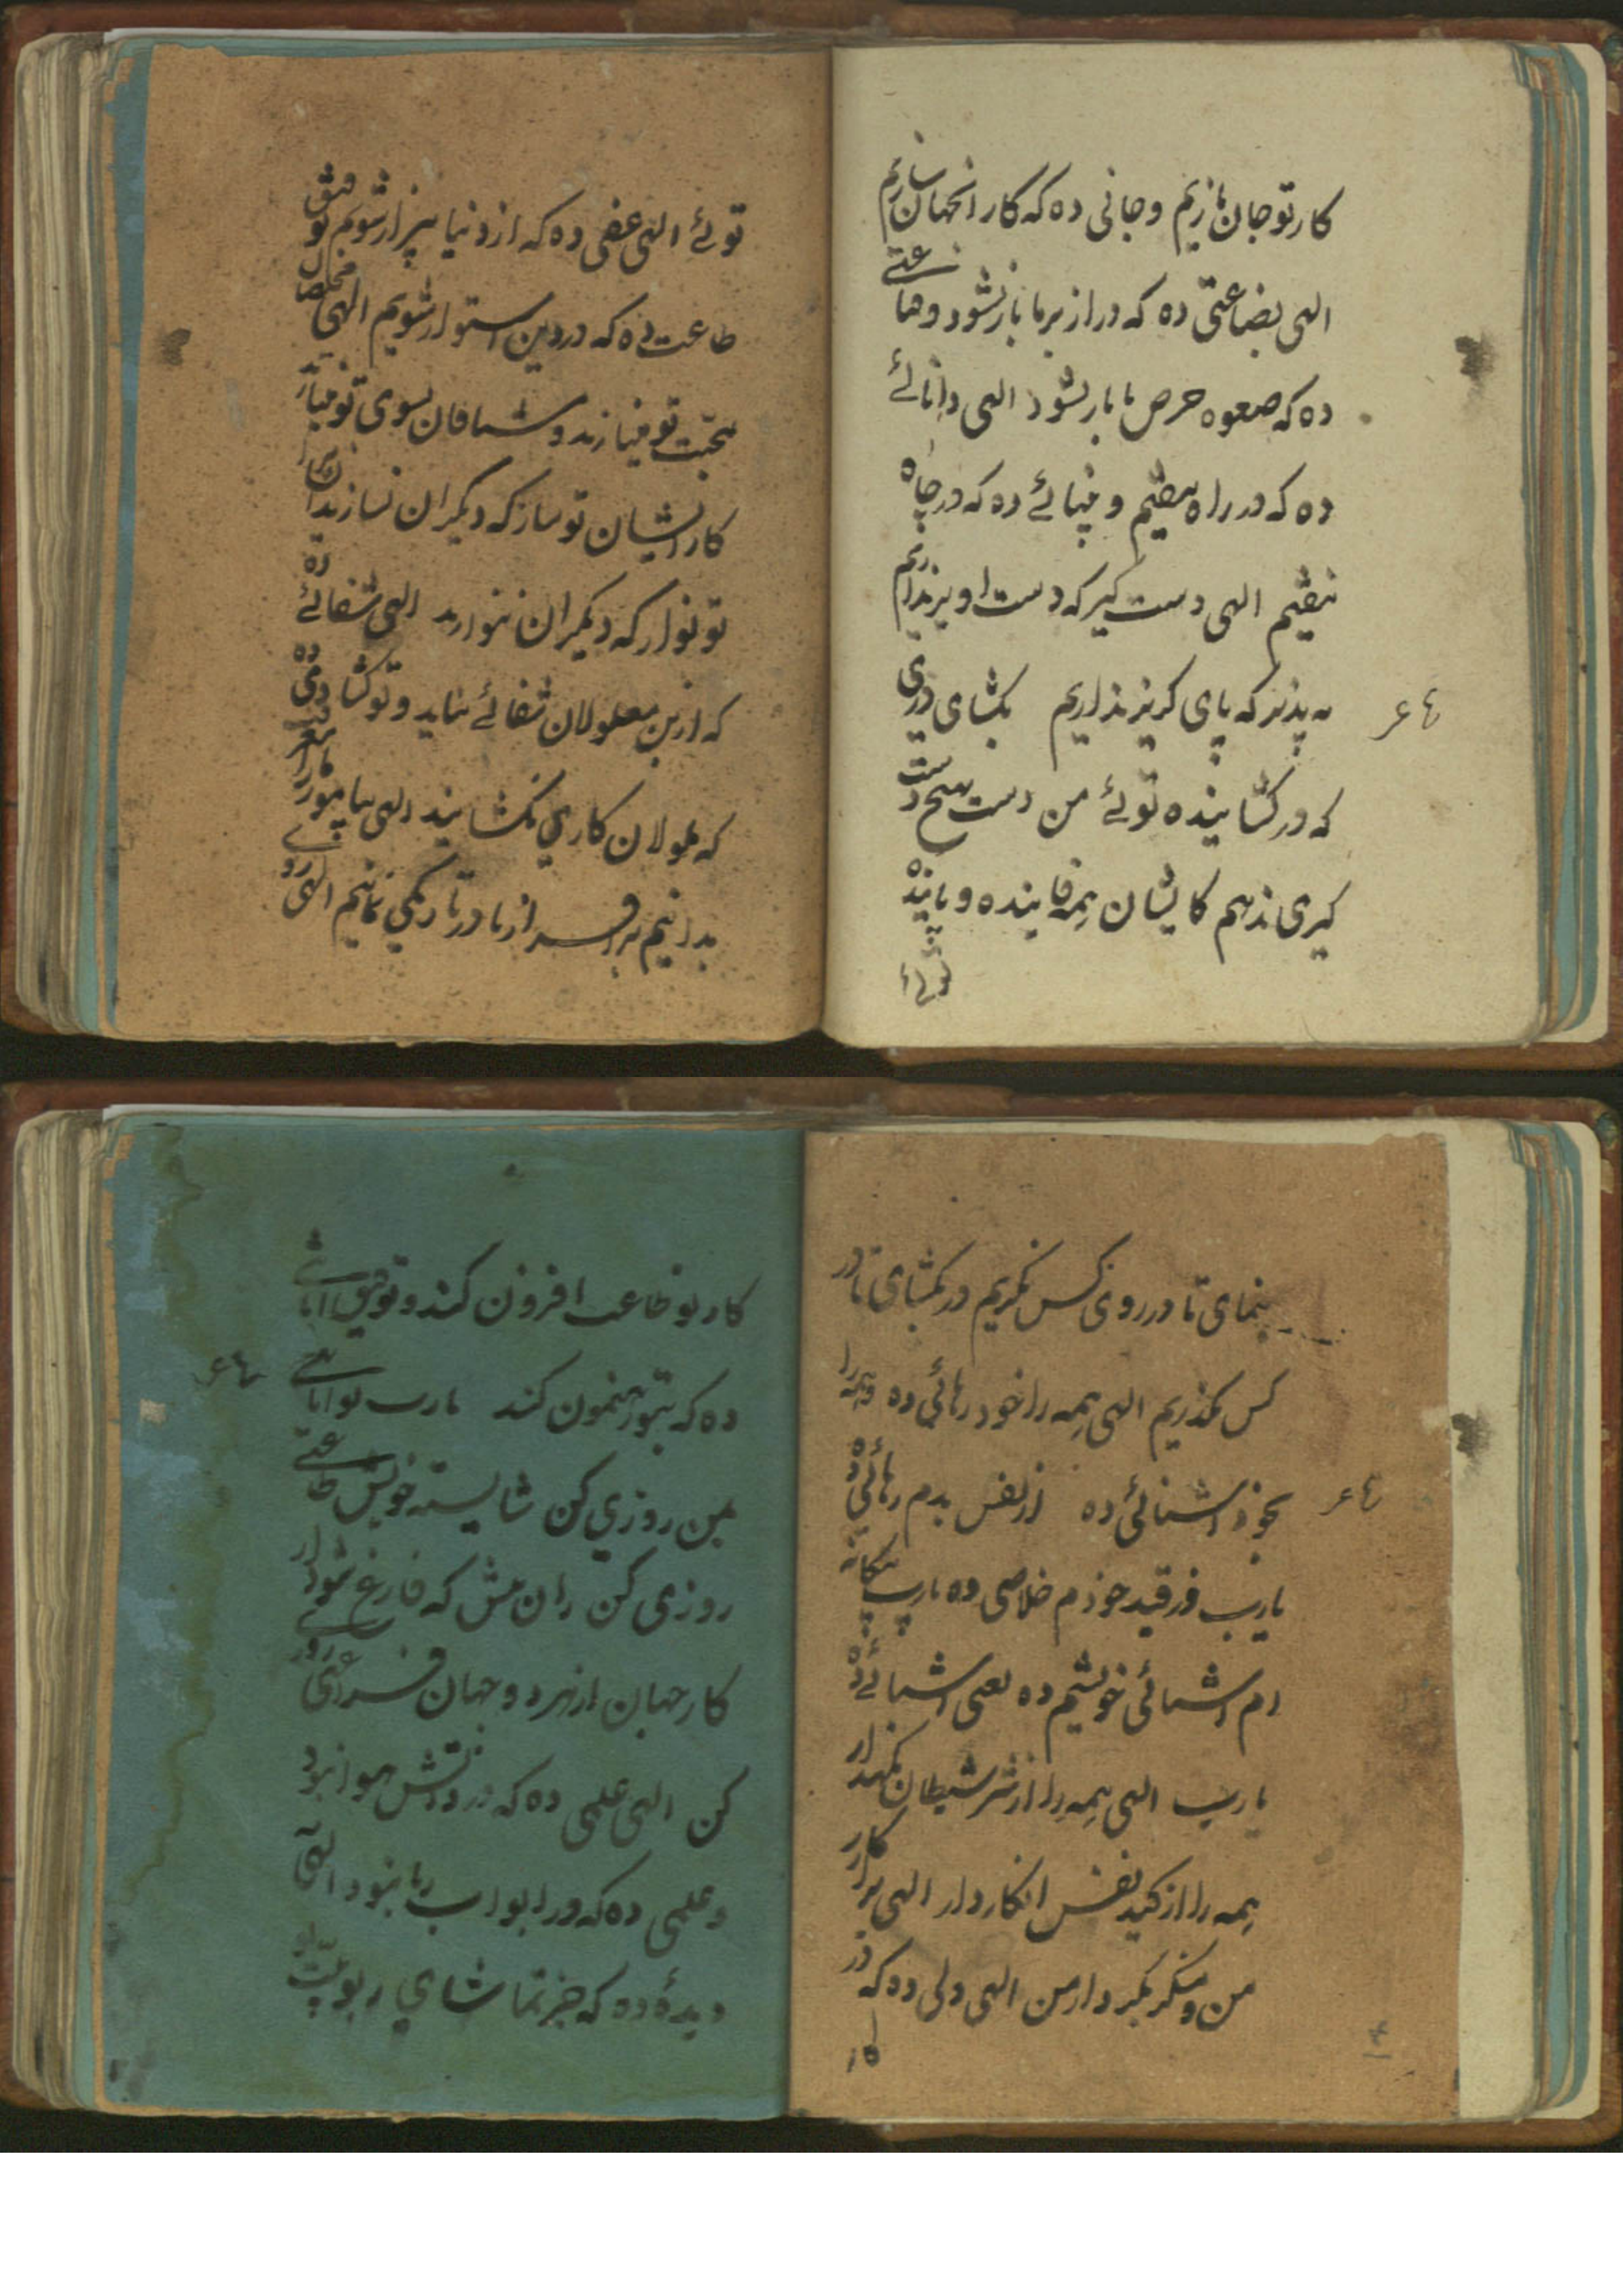 کار تو جان بازیم و جانی ده که کار انجهان سازیم
الهی بضاعتی ده که در از بر ما باز نشود و
ده که صعوه حرص ما باز نشود الهی دانائے
ده که در راه نیفتیم و بینائے ده که در چاه
نیفتیم الهی دست گیر که دست اویز نداریم
به پذیر که پای گریز نداریم بکشای دری
که در کشاینده توئے من دست بهیچ دست
گیری ندهم کایشان همه فانیند و پاینده
توئے
توئے الهی ده که از دنیا بیزار شویم توفیق
طاعت ده که در دین استوار شویم الهی
محبت تو مینازند و مشتاقان بسوی تو
کار ایشان تو ساز که دیگران نسازند
تو نواز که دیگران ننوازند الهی شفائے ده
که ازین معلولان شفائے نیاید و تو کشادی ده
که ملولان کاری نکشایند الهی بیاموز
بدانیم بر افروز تا در تاریکی نمانیم الهی
بنمای تا در روی کس ننگریم در بکشای تا در
کس نگذریم الهی همه را از خود رهائی ده و همه را
بخود اشنائی ده از نفس بدم رهائی ده
یارب وز قید خودم خلاصی ده یارب بیگانه
ام اشنائی خویشم ده یعنی اشنائے ده
یارب الهی همه را از شر شیطان نگهدار
همه را از کید نفس انکار دار الهی
من و منکر مگیر دار من الهی دلی ده که در
کار
کار تو طاعت افزون کند و توفیق
ده که بتو رهنمون کند یارب تو
بمن روزی کن شایسته خویش طاعتے
روزی کن زان پیش که فارغ شود از
کار جهان از هر دو جهان فراغتے روزی
کن الهی علمی ده که در و اتش هوا نبود
و عملی ده که در و اب ریا نبود الهی
دیدۀ ده که جز تماشای ربوبیت